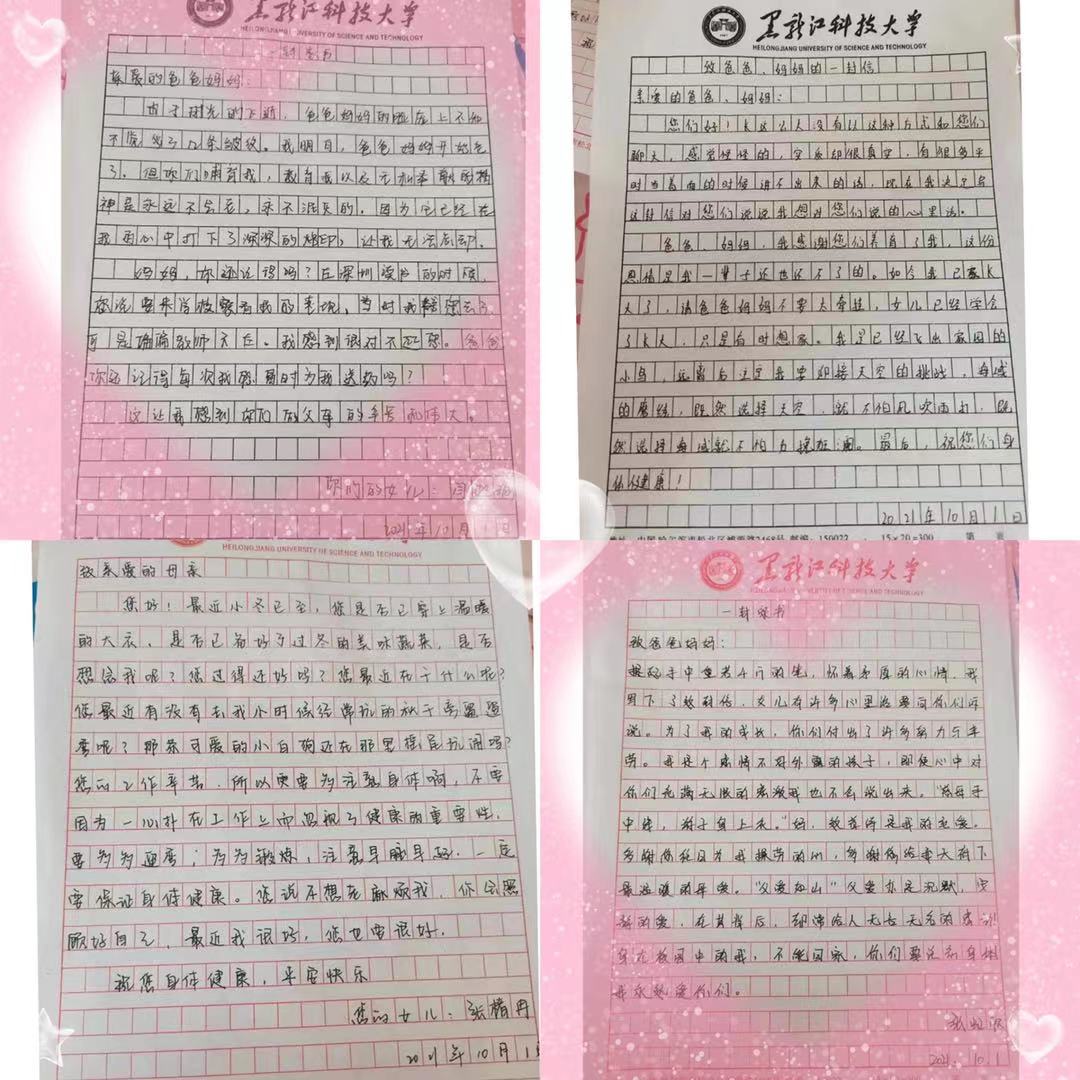 黑龙江科技大学
HEILONGJIANG UNIVERSITY OF SCIENCE AND TECHNOLOGY
一封家书
亲爱的爸爸妈妈:
由于时光的下逝,爸爸妈妈的脸庞上不知
不觉多了几条皱纹。我明白,爸爸妈妈开始老
了。但你们哺育我,教育我以及无私奉献的精
神是永远不会老,永不泯灭的。因为它已经在
我的心中打下了深深的烙印,让我无法忘却。
妈妈,你还记得吗?在深圳
您说要来学校看看我的表现,当时我
可是偏偏教师不在。我感到很对不起您。爸爸
你还记得每次我 时为我 吗?
这让我感到你们做父母的辛劳和伟大。
你们的女儿:
2021年10月1日
黑龙江科技大学
HEILONGJIANG UNIVERSITY OF SCIENCE AND TECHNOLOGY
致爸爸、妈妈的一封信
亲爱的爸爸、妈妈:
您们好!长这么大没有以这种方式和您们
聊天,感觉怪怪的,字 却很真实,有很多平
时当着面的时候讲不出来的话,现在我决定写
这封信对您们说说我想对您们说的心里话。
爸爸、妈妈,我感谢您们养育了我,这份
恩情是我一辈子还也还不了的。如今我已经长
大了,请爸爸妈妈不要太牵挂,女儿已经学会
了长大,只是有时想家。我是已经飞出家园的
小鸟,远离后注定我要迎接天空的挑战,
的磨练,既然选择天空,就不怕风吹雨打,既
然选择 就不怕力挽狂澜。最后,祝您们身
体健康!
2021年10月1日
地址:中国哈尔滨市松北区 2468号 邮编:150022 15×20=300 第 页
HEILONGJIANG UNIVERSITY OF SCIENCE AND TECHNOLOGY
致亲爱的母亲
您好!最近小冬已至,您是否已穿上温暖
的大衣,是否已备好了过冬的美味蔬菜,是否
想念我呢?您过得还好吗?您最近在干什么呢?
您最近有没有去我小时候经常玩的秋千旁遛遛
弯呢?那条可爱的小白狗还在那里摇尾玩闹吗?
您的工作辛苦,所以更要为注意身体啊,不要
因为一心扑在工作上而忽视了健康的重要性,
要为为 ;为为锻炼,注意早睡早起,一定
要保证身体健康。您说不想在麻烦我,你会照
顾好自己,最近我很好,您也要很好.
祝您身体健康,平安快乐
您的女儿:张 冉
2021年10月1
黑龙江科技大学
HEILONGJIANG UNIVERSITY OF SCIENCE AND TECHNOLOGY
一封家书
致爸爸妈妈:
提起手中重若千斤的笔,怀着矛盾的心情,我
写下了这封信,女儿有许多心里话要向你们诉
说。为了我的成长,你们付出了许多努力与辛
劳。我是个表情不对外露的孩子,即使心中对
你们充满无限的感激我也不会说出来。“慈母手
中线,游子身上衣。”妈,
多谢你 为我操劳的心,多谢你给 天底下
最温暖的母爱。“父爱如山”父爱
的爱,在其背后,却 给人无言无尽的
身在校园中的我,不能回家,你们要注意身体
我永远爱你们。
2021.10.1